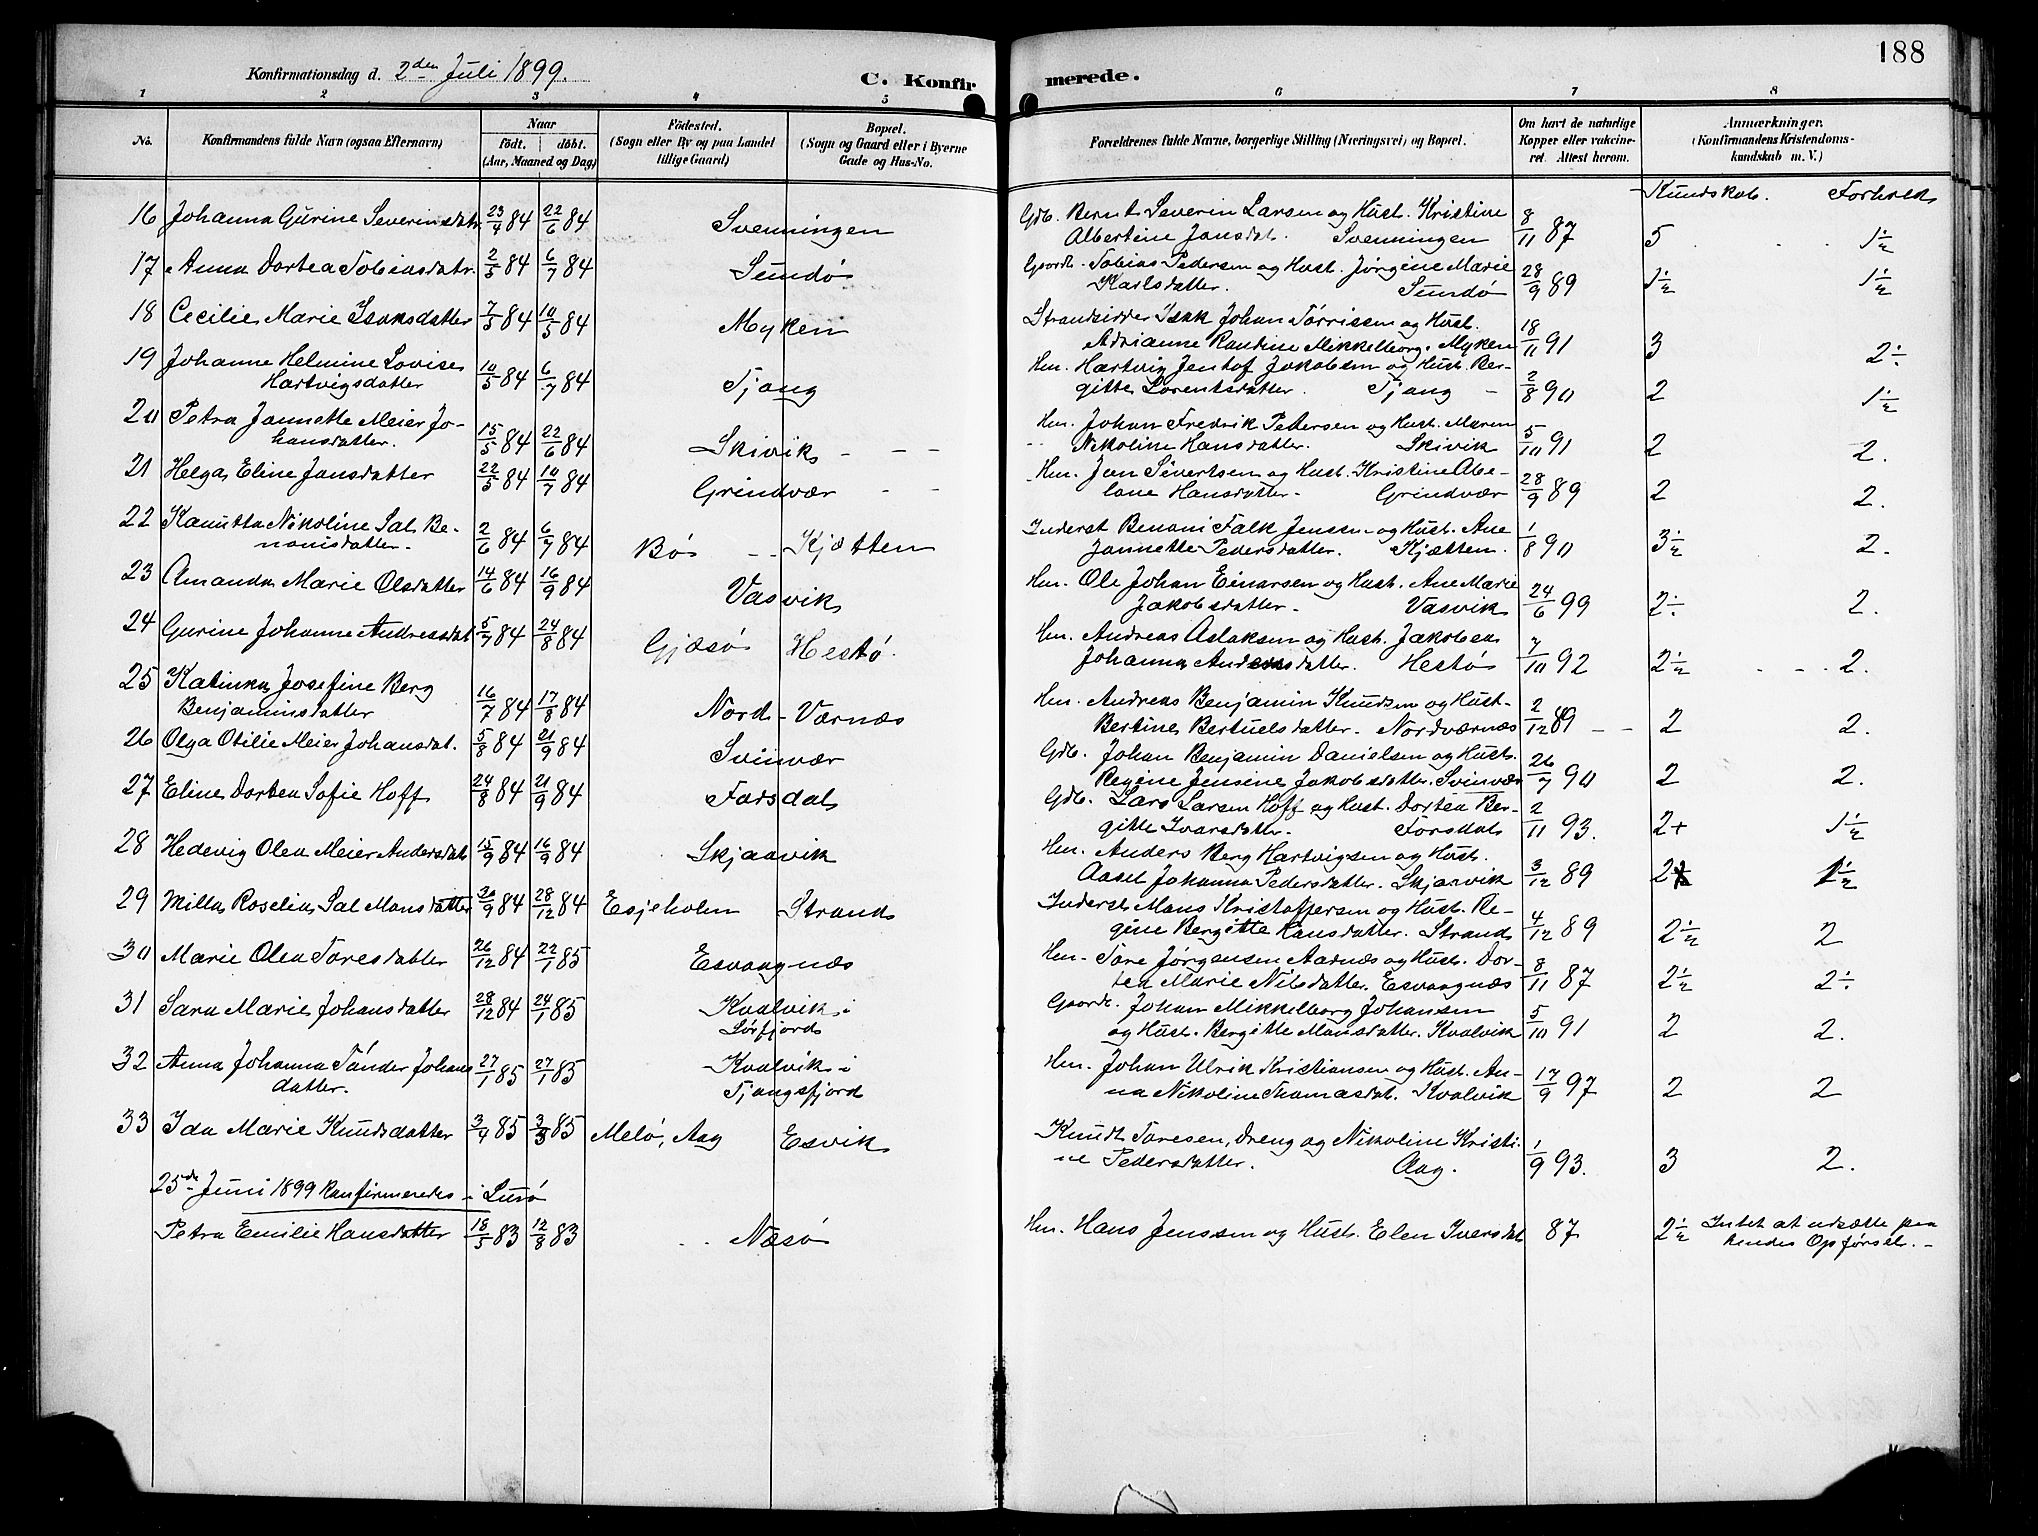 188
Konfirmationsdag d. 2den Juli 1899.
C. Konfirmerede.
1 2 3 4 5 6 7 8
No.
Konfirmandens fulde Navn (ogsaa Efternavn)
Naar
født. døbt.
(Aar, Maaned og Dag)
Födested.
(Sogn eller By og paa Landet
tillige Gaard)
Bopæl.
(Sogn og Gaard eller i Byerne
Gade og Hus-No.
Forældrenes fulde Navne, borgerlige Stilling (Næringsvei) og Bopæl.
Om havt de naturlige
Kopper eller vakcine-
ret. Attest herom.
Anmærkninger.
(Konfirmandens Kristendoms-
kundskab m. V.)
Kundskab. Forhold
16 Johanna Gurine Severinsdatr. 23/4 84 22/6 84 Svenningen Gdb. Bernt Severin Larsen og Hust. Kristine
Albertine Jansdat. Svenningen 8/11 87 5 1½
17 Anna Dortea Tobiasdatr. 2/5 84 6/7 84 Sundø Gaardb. Tobias Pedersen og Hust. Jørgine Marie
Karlsdatter. Sundø 28/9 89 1½ 1½
18 Cecilie Marie Isaksdatter 7/5 84 10/5 84 Myken Strandsidder Isak Johan Tørrissen og Hust.
Adrianne Randine Mikkelborg. Myken 18/11 91 3 2÷
19 Johanne Helmine Lovise
Hartvigsdatter 10/5 84 6/7 84 Tjong Hm. Hartvig Jentof Jakobsen og Hust. Ber-
gitte Lorentsdatter. Tjong - 2/8 90 2 1½
20 Petra Jannette Meier Jo-
hansdatter. 15/5 84 22/6 84 Skivik - - - Hm. Johan Fredrik Petersen og Hust. Maren
Nikoline Hansdatter. Skivik 5/10 91 2 2.
21 Helga Eline Jansdatter 22/5 84 10/7 84 Grindvær - - Hm. Jan Sivertsen og Hust. Kristine Abe-
lone Hansdatter - Grindvær 28/9 89 2 2.
22 Kanutta Nikoline Sal. Be-
nonisdatter. 2/6 84 6/7 84 Bø - - Kjætten Inderst Benoni Falk Jensen og Hust. Ane
Jannette Pedersdatter. Kjætten. 1/8 90 3½ 2.
23 Amanda Marie Olsdatter 14/6 84 16/9 84 Vasvik Hm. Ole Johan Einarsen og Hust. Ane Marie
Jakobsdatter - Vasvik 24/6 99 2÷ 2.
24 Gurine Johanne Andreasdat 5/7 84 24/8 84 Gjæsø Hestø. Hm. Andreas Aslaksen og Hust. Jakobea
Johanna Andersdatter. Hestø 7/10 92 2½ - - 2.
25 Katinka Josefine Berg
Benjaminsdatter 16/7 84 17/8 84 Nord-Værnæs Hm. Andreas Benjamin Knudsen og Hust-
Bertine Bertuelsdatter. Nordværnæs 2/12 89 - - 2 2.
26 Olga Otilie Meier Johansdat. 5/8 84 21/9 84 Svinvær Gdb. Johan Benjamin Danielsen og Hust.
Regine Jensine Jakobsdatter. Svinvær 26/7 90 2 2.
27 Eline Dortea Sofie Hoff 24/8 84 21/9 84 Farsdal Gdb. Lars Larsen Hoff og Hust. Dortea Ber-
gitte Ivarsdatter. Forsdal 2/11 93. 2+ 1½
28 Hedevig Olea Meier Andersdat 15/9 84 16/9 84 Skjaavik Hm. Anders Berg Hartvigsen og Hust.
Aasel Johanna Pedersdatter. Skjaavik 3/12 89 2 1½
29 Milla Roselia Sal Mansdatter 26/9 84 28/12 84 Esjeholm Strand Inderst Mans Kristoffersen og Hust. Re-
gine Bergitte Hansdatter. Strand 4/12 89 2½ 2
30 Marie Olea Toresdatter 26/12 84 22/1 85 Esvaagnæs Hm. Tore Jørgensen Aarnæs og Hust. Dor-
tea Marie Nilsdatter. Esvaagnæs 8/11 87 2½ 2÷
31 Sara Marie Johansdatter 28/12 84 24/1 85 Kvalvik i
Sørfjord Gaardb. Johan Mikkelborg Johansen
og Hust. Bergitte Mansdatter. Kvalvik 5/10 91 2 2.
32 Anna Johanna Tønder Johans
datter. 27/1 85 27/1 85 Kvalvik i
Tjongsfjord Hm. Johan Ulrik Kristiansen og Hust. An-
na Nikoline Thomasdat. Kvalvik 17/9 97 2 2
33 Ida Marie Knudsdatter 3/4 85 3/3 85 Melø, Aag Esvik Knudt Toresen, Dreng og Nikoline Kristi-
ne Pedersdatter. Aag. 1/9 93. 3 2.
25de Juni 1899 konfirmeredes i Lurø
Petra Emilie Hansdatter 18/5 83 12/8 83 Næsø Hm. Hans Jenssen og Hust. Elen Iversdat 87 2½ Intet at udsætte paa
hendes Opførsel. -